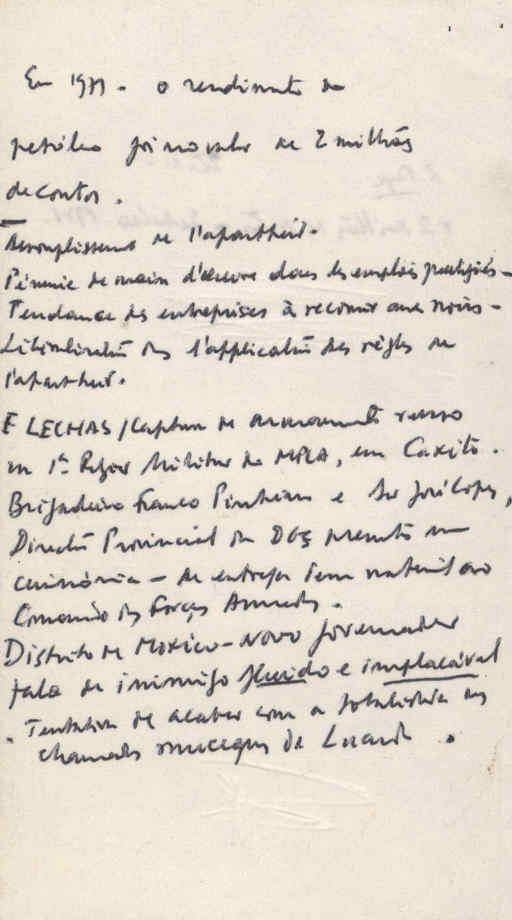 Em 1971 - o rendimento do
petróleo foi no valor de 2 milhões
de contos.
Assouplissement de l'apartheid.
Pénurie de main d'œuvre dans les emplois
Tendance des entreprises à recourir aux noirs -
l'application des règles de
l'apartheid.
FLECHAS / Captura de armamento russo
na 1ª Região Militar do MPLA, em Caxito.
Brigadeiro Franco Pinheiro e Sr José Lopes,
Director Provincial da DGS presentes na
cerimónia - de entrega desse material ao
Comando das Forças Armadas.
Distrito de Moxico - novo governador
fala de inimigo fluido e implacável
- Tentativa de acabar com a das
chamados musseques de Luanda.